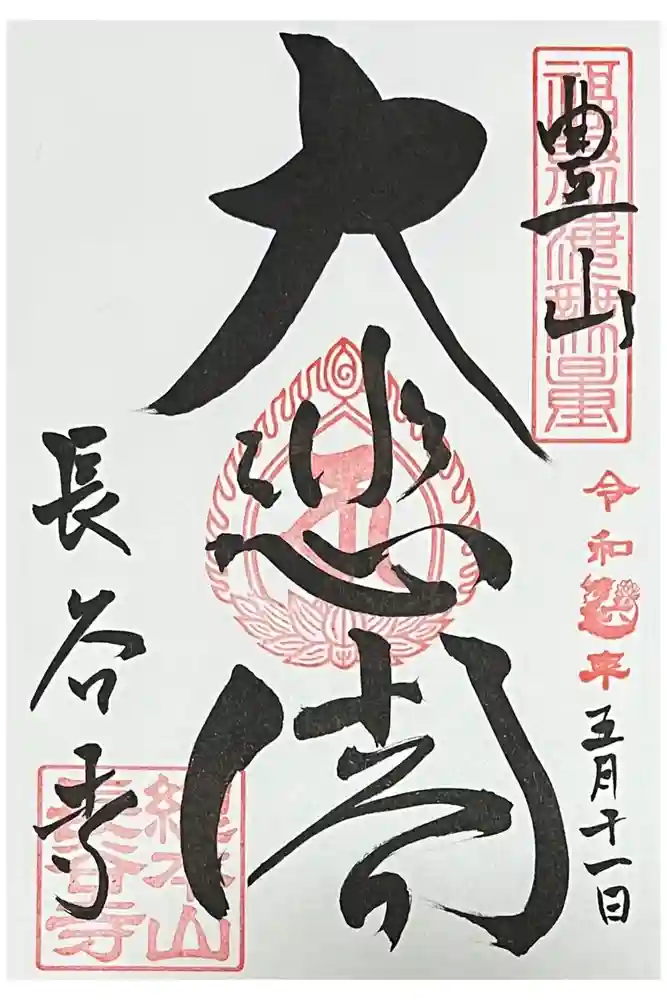 豊山
福聚海無量
令和年五月十一日
大悲閣
長谷寺
総本山
長谷寺